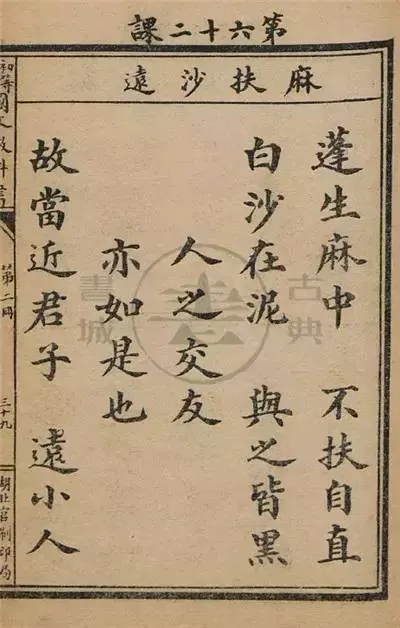 第六十二課
麻扶沙遠
蓬生麻中 不扶自直
白沙在泥 與之皆黑
人之交友
亦如是也
故當近君子 遠小人
初等國文教科書
第二冊
三十九
湖北官刷印局
古典書城